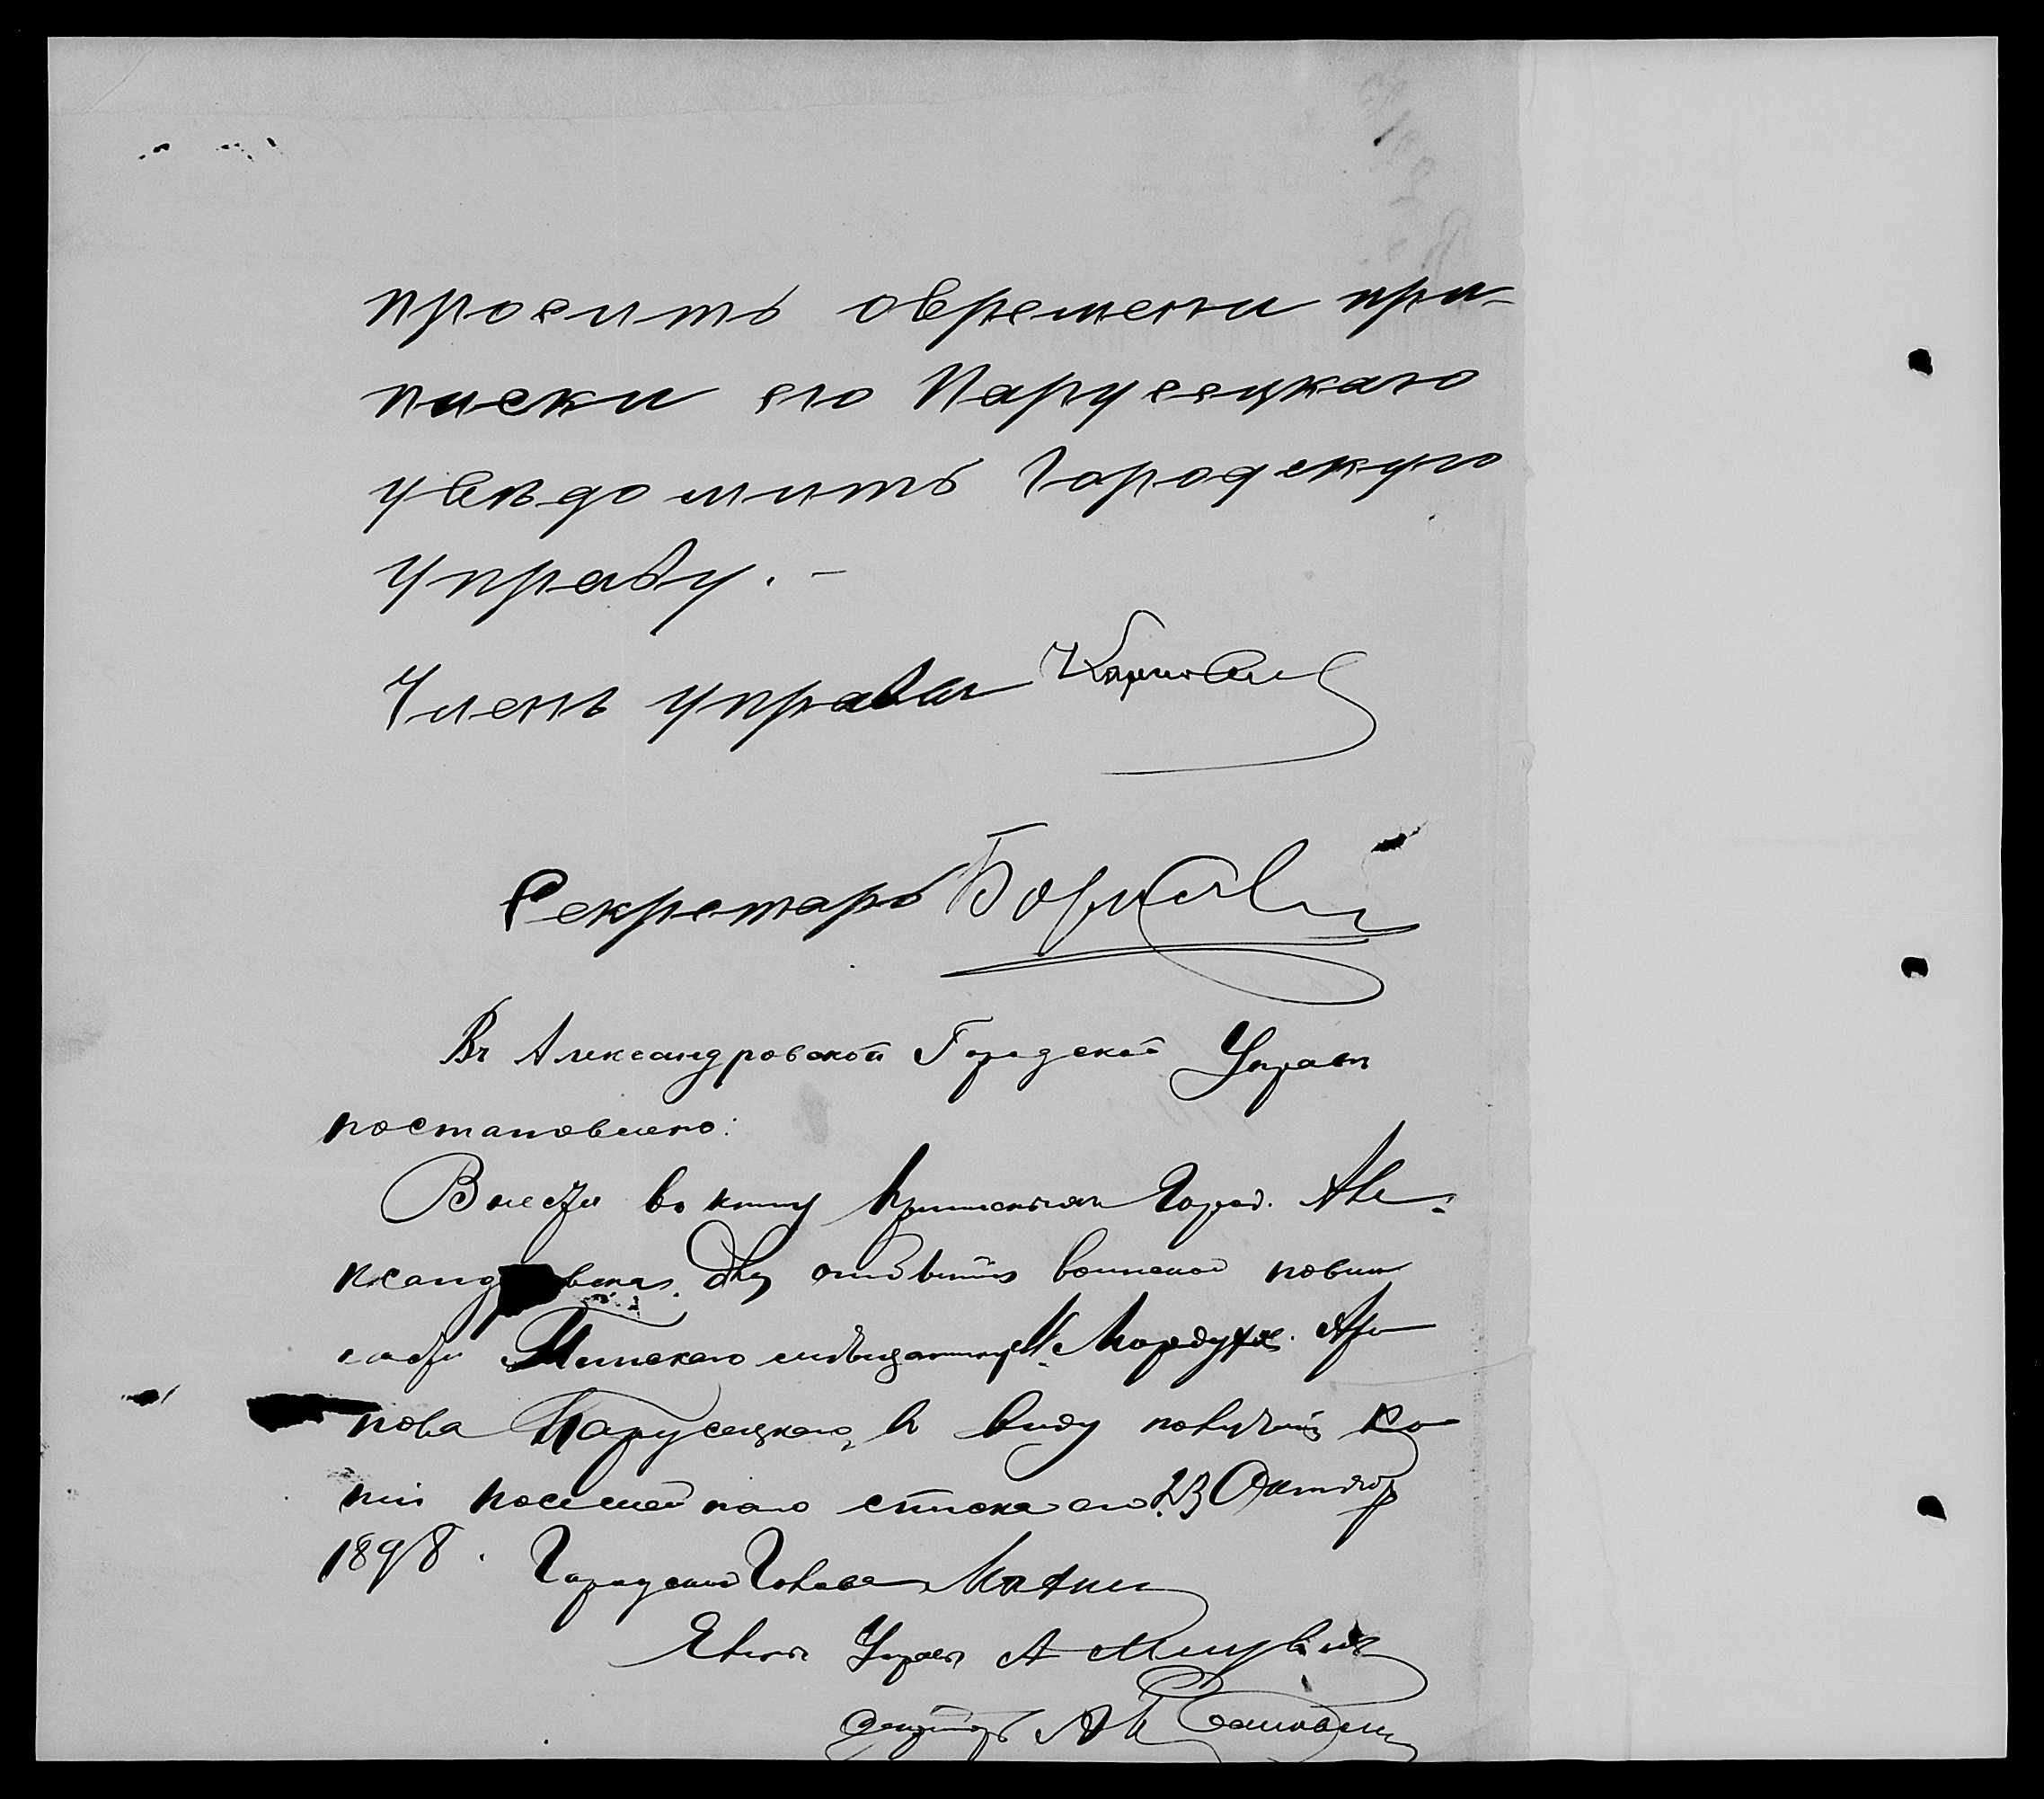 просить о времени при-
писки его Парусецкаго
увѣдомить Городскую
Управу. -
Членъ управы
Секретарь
Въ Александровской Городской Управѣ
постановлено:
Внести въ книгу Город. Але-
ксанд вска для отбытія воинской повин
ности Пинскаго мѣщанина Мордуха Аро
нова Парусецкаго, въ виду полученія ко
піи посемейнаго списка его. 23 Октября
1898. Городской Голова
Членъ Управы А
А